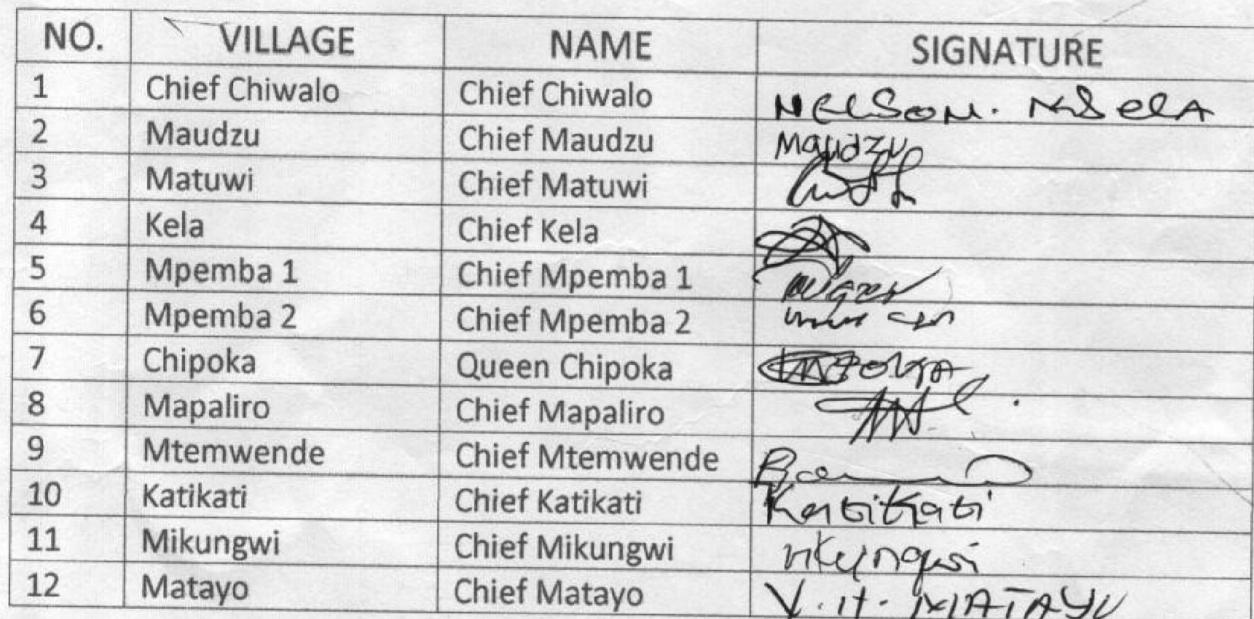 NO. VILLAGE NAME SIGNATURE
1 Chief Chiwalo Chief Chiwalo NELSON.
2 Maudzu Chief Maudzu Maudzu
3 Matuwi Chief Matuwi
4 Kela Chief Kela
5 Mpemba 1 Chief Mpemba 1
6 Mpemba 2 Chief Mpemba 2
7 Chipoka Queen Chipoka
8 Mapaliro Chief Mapaliro
9 Mtemwende Chief Mtemwende
10 Katikati Chief Katikati Katikati
11 Mikungwi Chief Mikungwi
12 Matayo Chief Matayo V. H. MATAYU